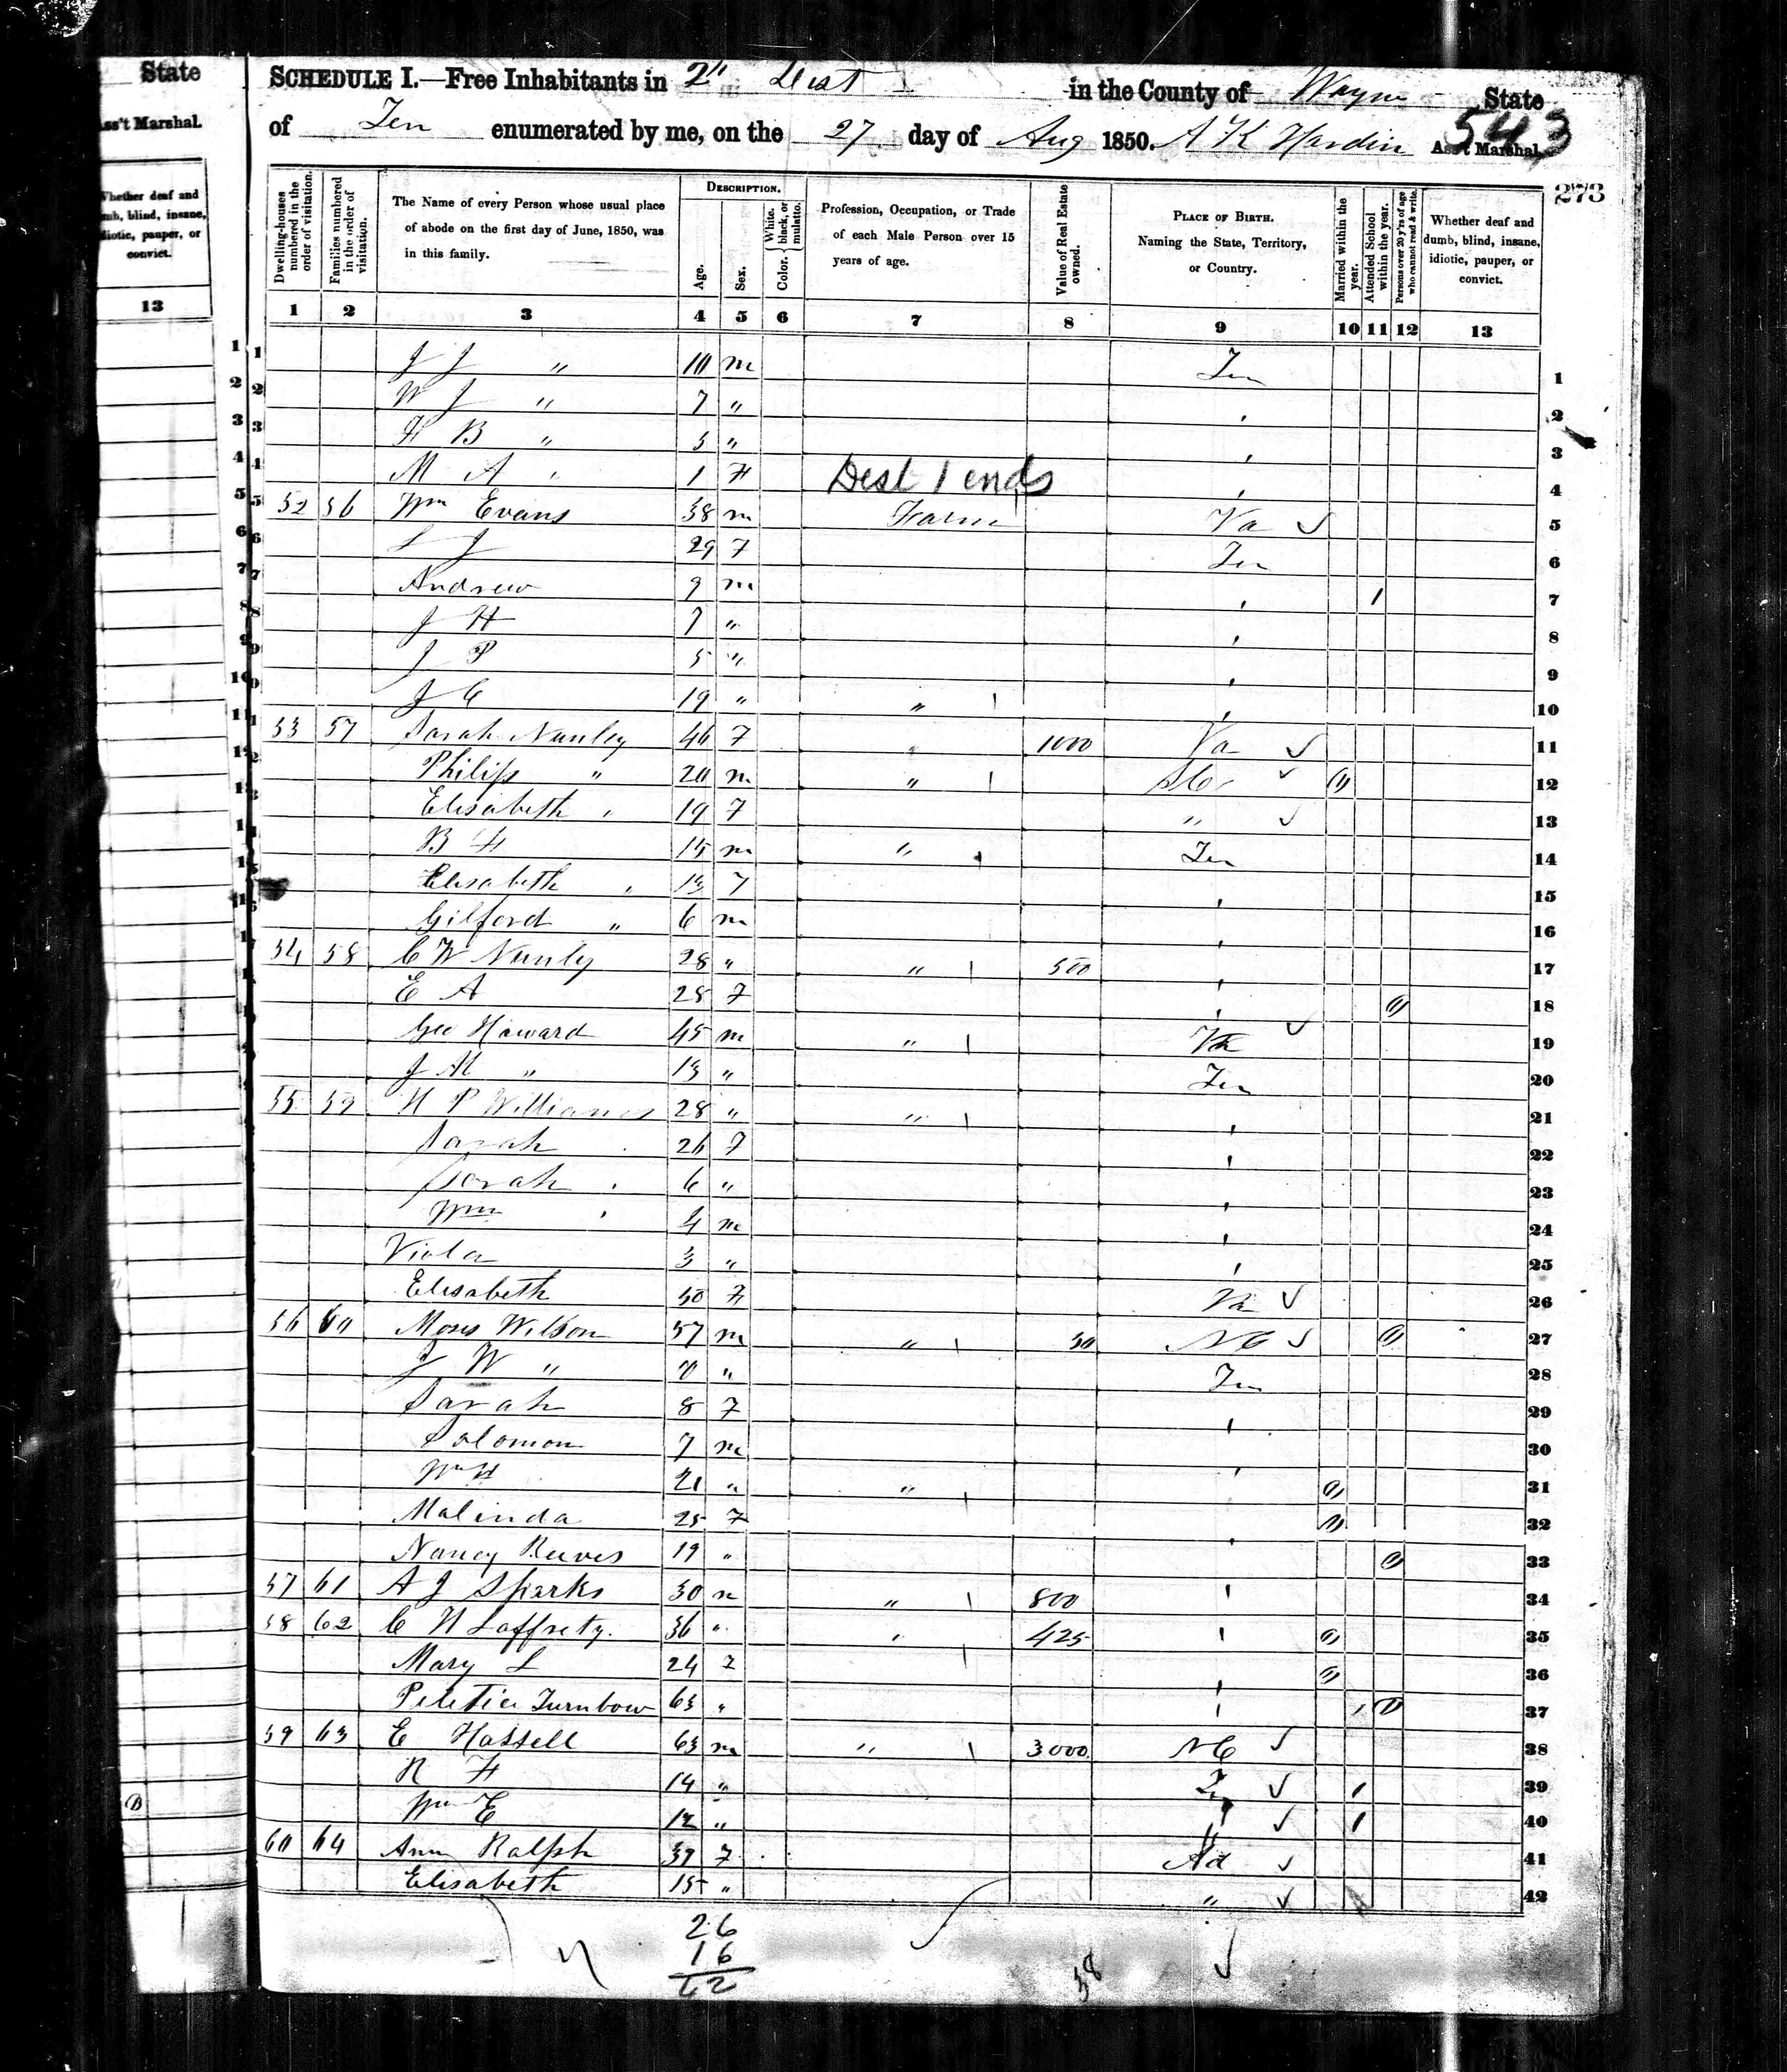 State
Ass't Marshal.
Whether deaf and
dumb, blind, insane,
idiotic, pauper, or
convict.
13
SCHEDULE I.—Free Inhabitants in 2" Dist in the County of Wayne State
of Ten enumerated by me, on the 27 day of Aug 1850. A K Hardin Ass't Marshal.
543
273
Dwelling-houses numbered in the order of visitation.
Families numbered in the order of visitation.
The Name of every Person whose usual place of abode on the first day of June, 1850, was in this family.
DESCRIPTION.
Age.
Sex.
Color. White, black, or mulatto.
Profession, Occupation, or Trade of each Male Person over 15 years of age.
Value of Real Estate owned.
PLACE OF BIRTH. Naming the State, Territory, or Country.
Married within the year.
Attended School within the year.
Persons over 20 y'rs of age who cannot read & write.
Whether deaf and dumb, blind, insane, idiotic, pauper, or convict.
1 2 3 4 5 6 7 8 9 10 11 12 13
1 J J " 10 m Ten 1
2 W J " 7 " 2
3 B " 5 " 3
4 M A " 1 F 4
Dest 1 ends
5 52 56 Wm Evans 38 m Farm Va 5
6 J 29 F Ten 6
7 Andrew 9 m 1 7
8 J H 7 " 8
9 J P 5 " 9
10 J C 19 " " 10
11 53 57 Sarah Nunley 46 F " 1000 Va 11
12 Philip " 20 m " 12
13 Elisabeth " 19 F " 13
14 B F 15 m " Ten 14
15 Elisabeth " 13 F 15
16 Gilford " 6 m 16
17 54 58 C W Nunly 28 " " 500 17
18 E A 28 F 18
19 Geo Howard 45 m " Va 19
20 J M " 13 " Ten 20
21 55 59 H P Williams 28 " " 21
22 Sarah 26 F 22
23 Sarah 6 " 23
24 Wm 4 m 24
25 Viola 3 " 25
26 Elisabeth 50 F Va 26
27 56 60 Moses Wilson 57 m " 50 NC 27
28 J W " " Ten 28
29 Sarah 8 F 29
30 Solomon 7 m 30
31 Wm H 21 " " 31
32 Malinda 25 F 32
33 Nancy Reeves 19 " 33
34 57 61 A J Sparks 30 m " 800 34
35 58 62 C H Laffrety. 36 " " 425 35
36 Mary L 24 F 36
37 Turnbow 63 " 37
38 59 63 E Hassell 63 m " 3000 NC 38
39 R H 14 " Ten 1 39
40 Wm E 12 " 1 40
41 60 64 Ann Ralph 37 F 41
42 Elisabeth 15 " " 42
26
16
42
38